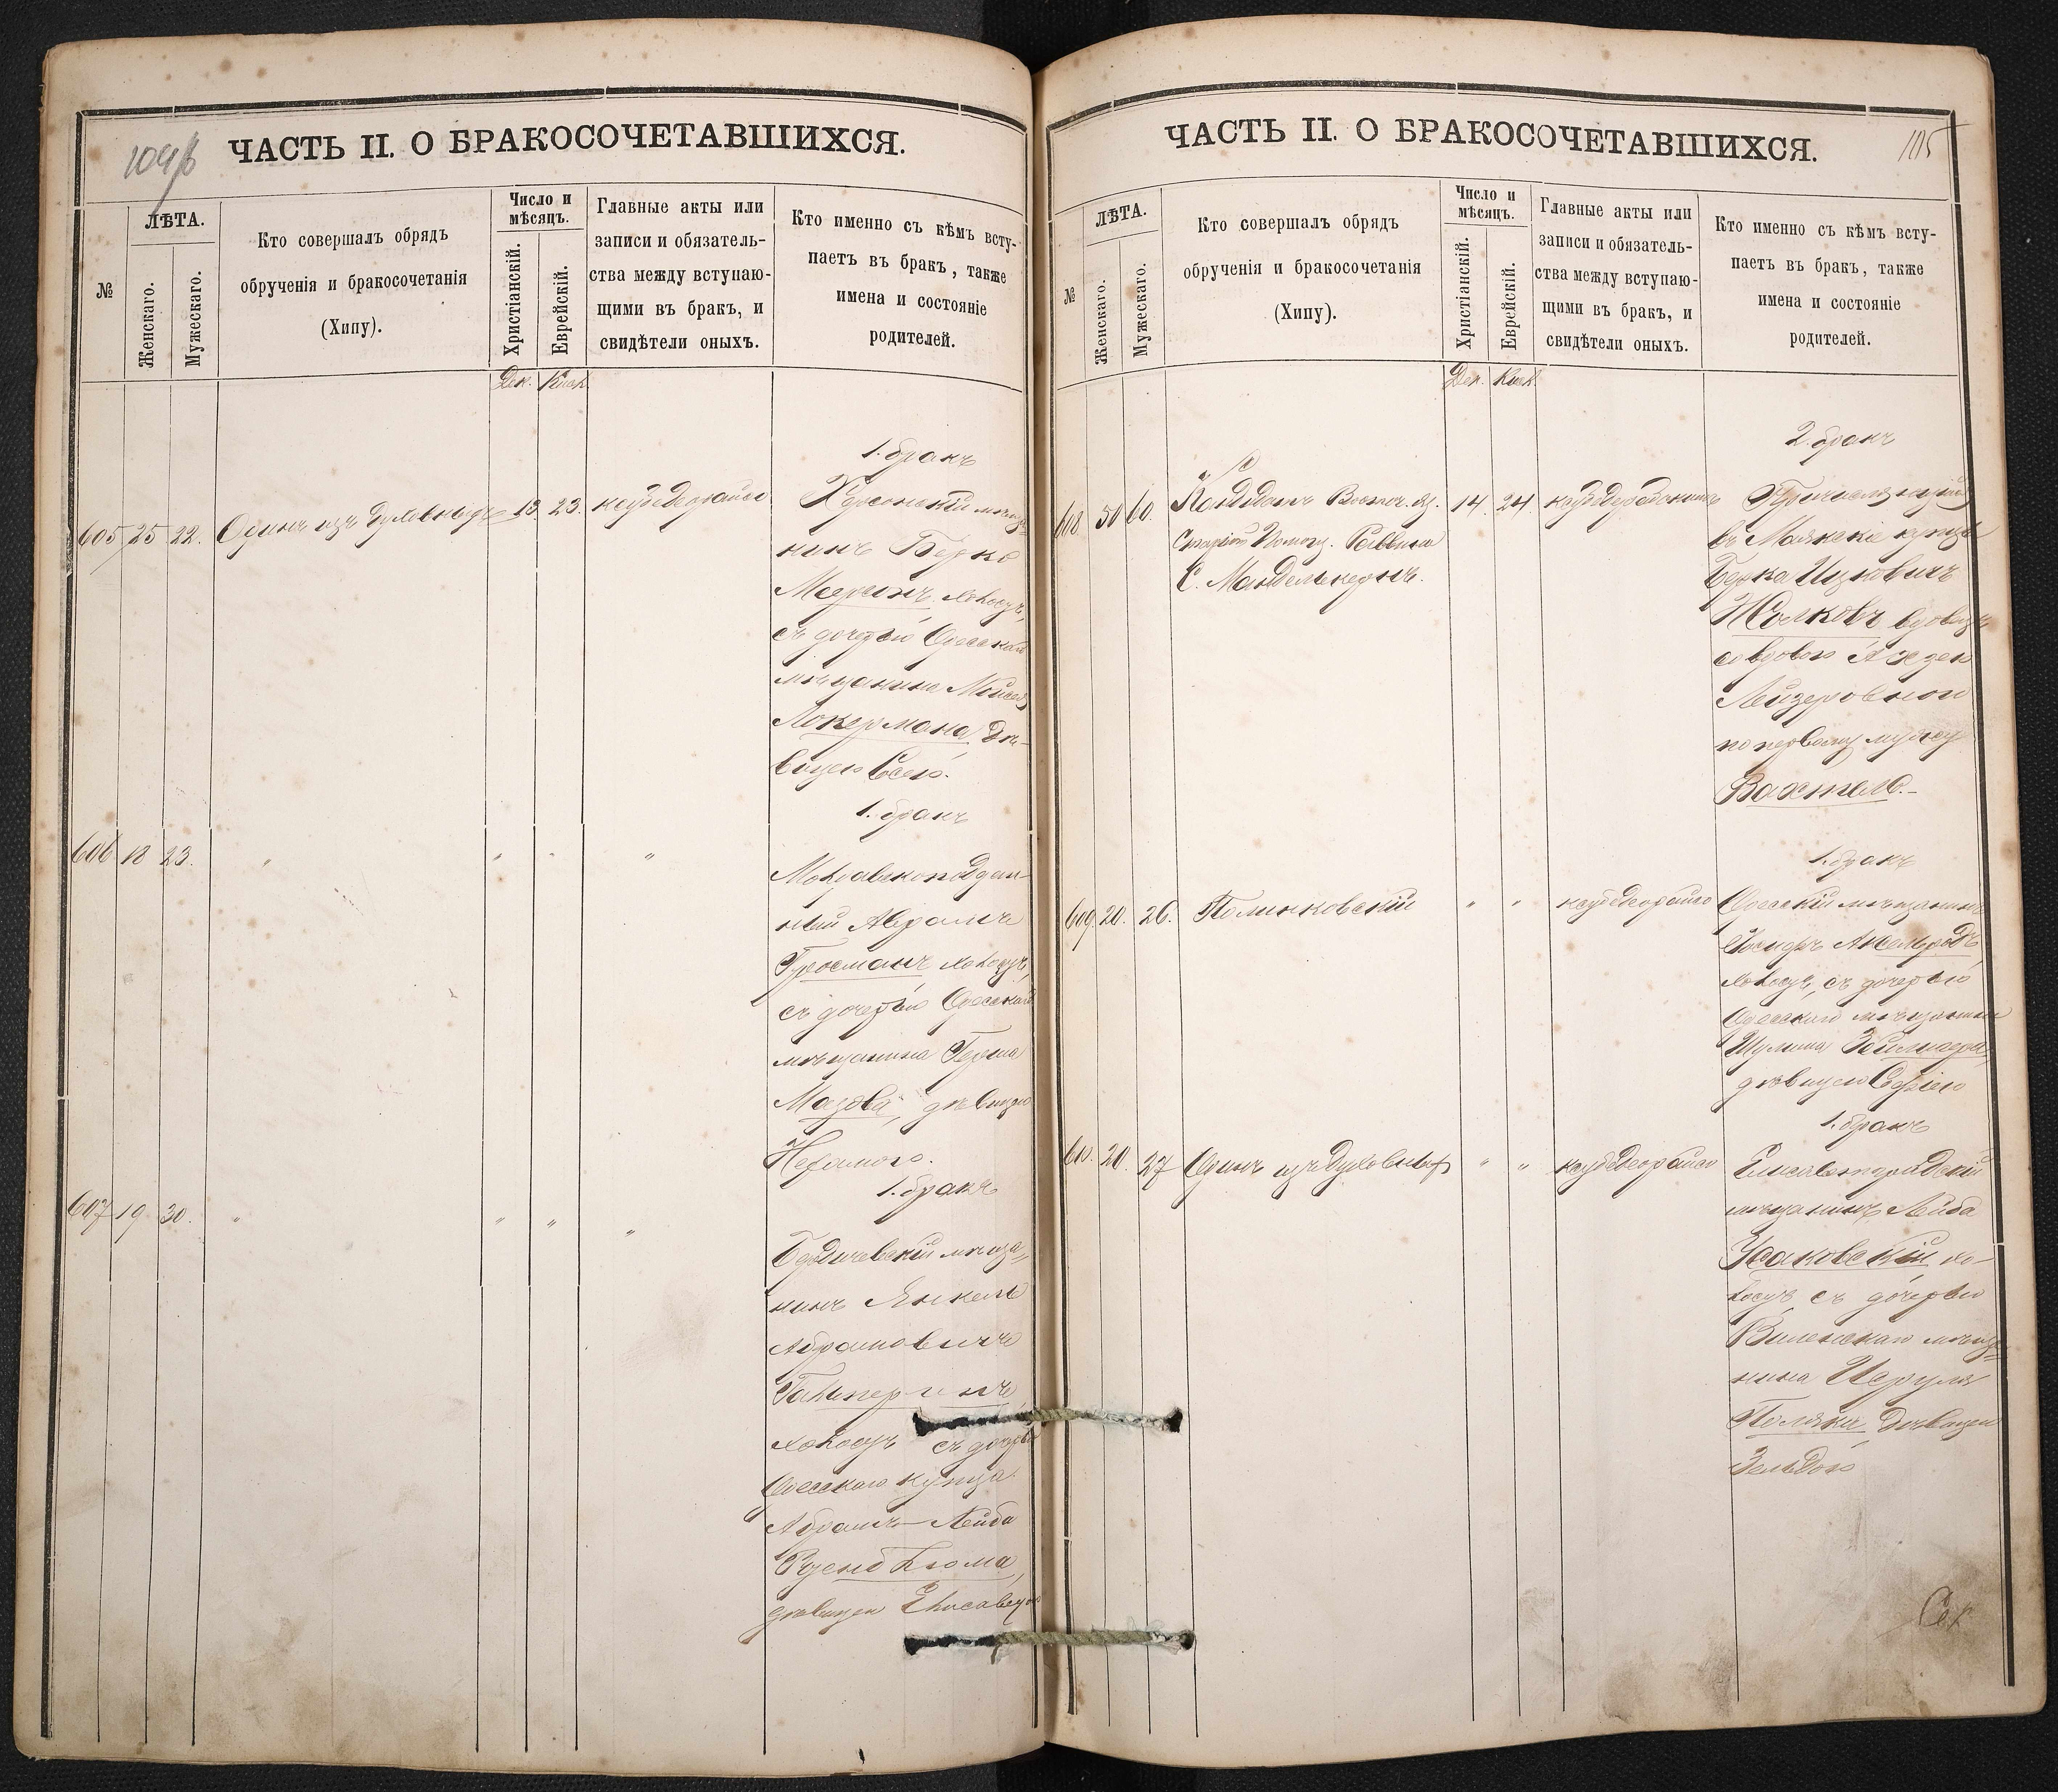 104/б
ЧАСТЬ II. О БРАКОСОЧЕТАВШИХСЯ.
№
ЛѢТА.
Женскаго.
Мужескаго.
Кто совершалъ обрядъ
обрученія и бракосочетанія
(Хипу).
Число и
мѣсяцъ.
Христіанскій.
Еврейскій.
Главные акты или
записи и обязатель-
ства между вступаю-
щими въ бракъ, и
свидѣтели оныхъ.
Кто именно съ кѣмъ всту-
паетъ въ бракъ, также
имена и состояніе
родителей.
Дек. Кисл.
1. бракъ
605 25 22. Одинъ изъ Духовныхъ 13. 23.
Херсонскій мѣща-
нинъ Берко
Меерсонъ, холост,
съ дочерью Одесскаго
мѣщанина Мойсея
Локермана дѣ-
вицею Сосею.
1. бракъ
606 18 23. " " " "
Молдавскоподдан-
ный Абрамъ
Гросманъ холостъ,
съ дочерью Одесскаго
мѣщанина Герша
Мазова, дѣвицею
Нехамою.
1. бракъ
607 19 30. " " " "
Бердичевскій мѣща-
нинъ Янкель
Абрамовичъ
Гальперинъ,
холостъ съ дочерью
Одесскаго купца
Абрамъ-Лейба
Розенблюма,
дѣвицею Елисаветою
105
ЧАСТЬ II. О БРАКОСОЧЕТАВШИХСЯ.
№
ЛѢТА.
Женскаго.
Мужескаго.
Кто совершалъ обрядъ
обрученія и бракосочетанія
(Хипу).
Число и
мѣсяцъ.
Христіанскій.
Еврейскій.
Главные акты или
записи и обязатель-
ства между вступаю-
щими въ бракъ, и
свидѣтели оныхъ.
Кто именно съ кѣмъ всту-
паетъ въ бракъ, также
имена и состояніе
родителей.
Дек. Кисл.
2. бракъ
608 50 60. Кандидатъ Восточ. яз. 14. 24.
Старшій Помощ. Раввина
С. Манделькернъ.
Причисляющійся
въ Маякскіе купцы
Берка Ицковичъ
Волковъ вдовецъ
со вдовою
Лейзеровной
по первому мужу
Вахтель.-
1. бракъ
609 20. 26. Полинковскій " "
Одесскій мѣщанинъ
Аксельродъ,
холостъ, съ дочерью
Одесскаго мѣщанина
Шулима
дѣвицею Софіею
1. бракъ
610. 20. 27 Одинъ изъ Духовныхъ " "
Елисаветградскій
мѣщанинъ Лейба
Усаковскій, хо-
лостъ съ дочерью
Виленскаго мѣща-
нина Исруля
Поляка дѣвицею
Зельдою